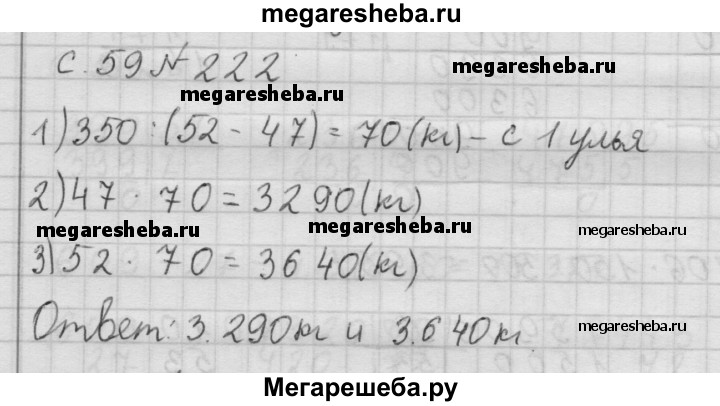 megaresheba.ru
с. 59 № 222
megaresheba.ru
megaresheba.ru
1) 350 : (52 - 47) = 70 (кг) - с 1 улья
2) 47 · 70 = 3290 (кг)
megaresheba.ru megaresheba.ru megaresheba.ru
3) 52 · 70 = 3640 (кг)
Ответ: 3.290 кг и 3.640 кг.
megaresheba.ru
Мегарешеба.ру